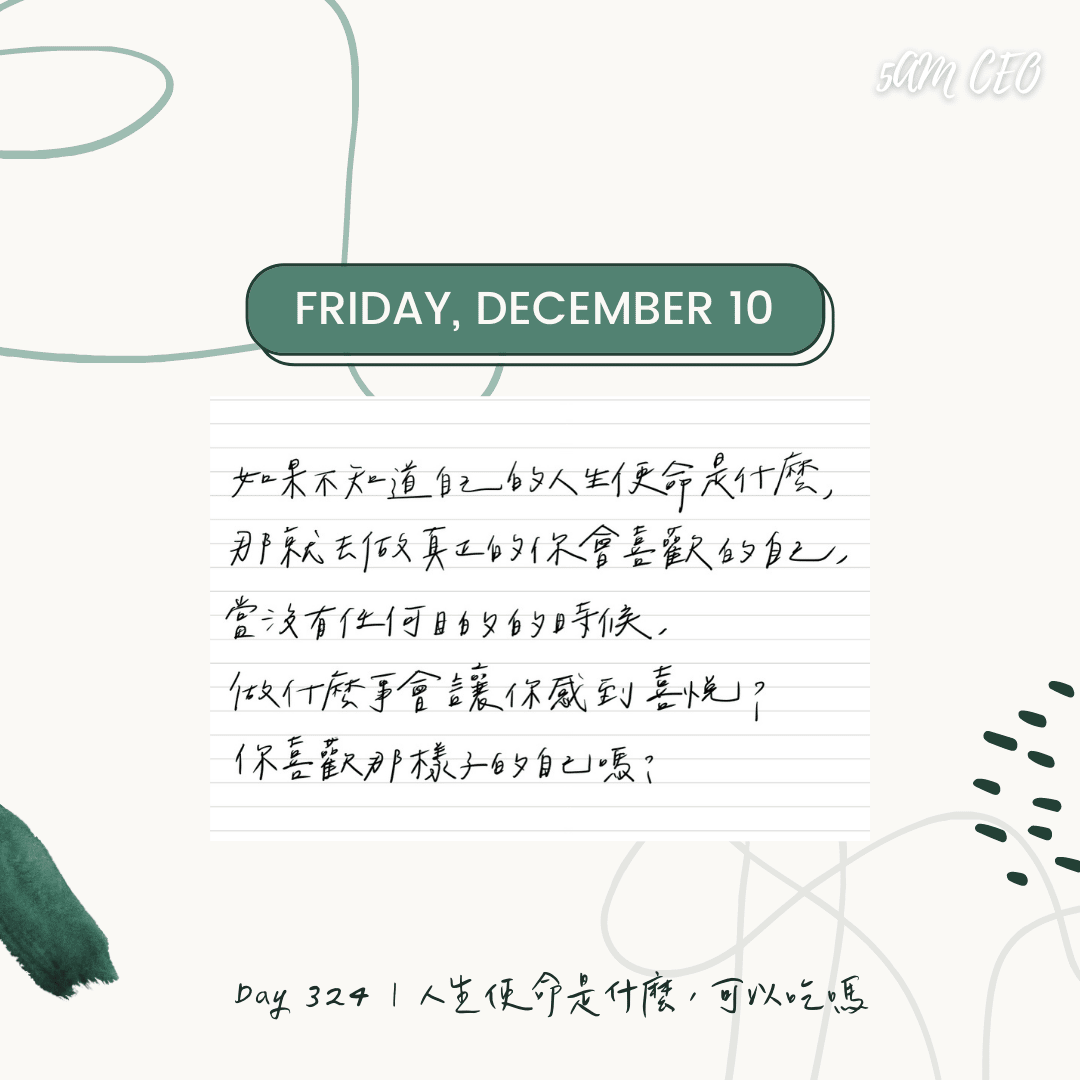 5AM CEO
FRIDAY, DECEMBER 10
如果不知道自己的人生使命是什麼,
那就去做真正的你會喜歡的自己,
當沒有任何目的的時候,
做什麼事會讓你感到喜悅?
你喜歡那樣子的自己嗎?
Day 324 | 人生使命是什麼,可以吃嗎